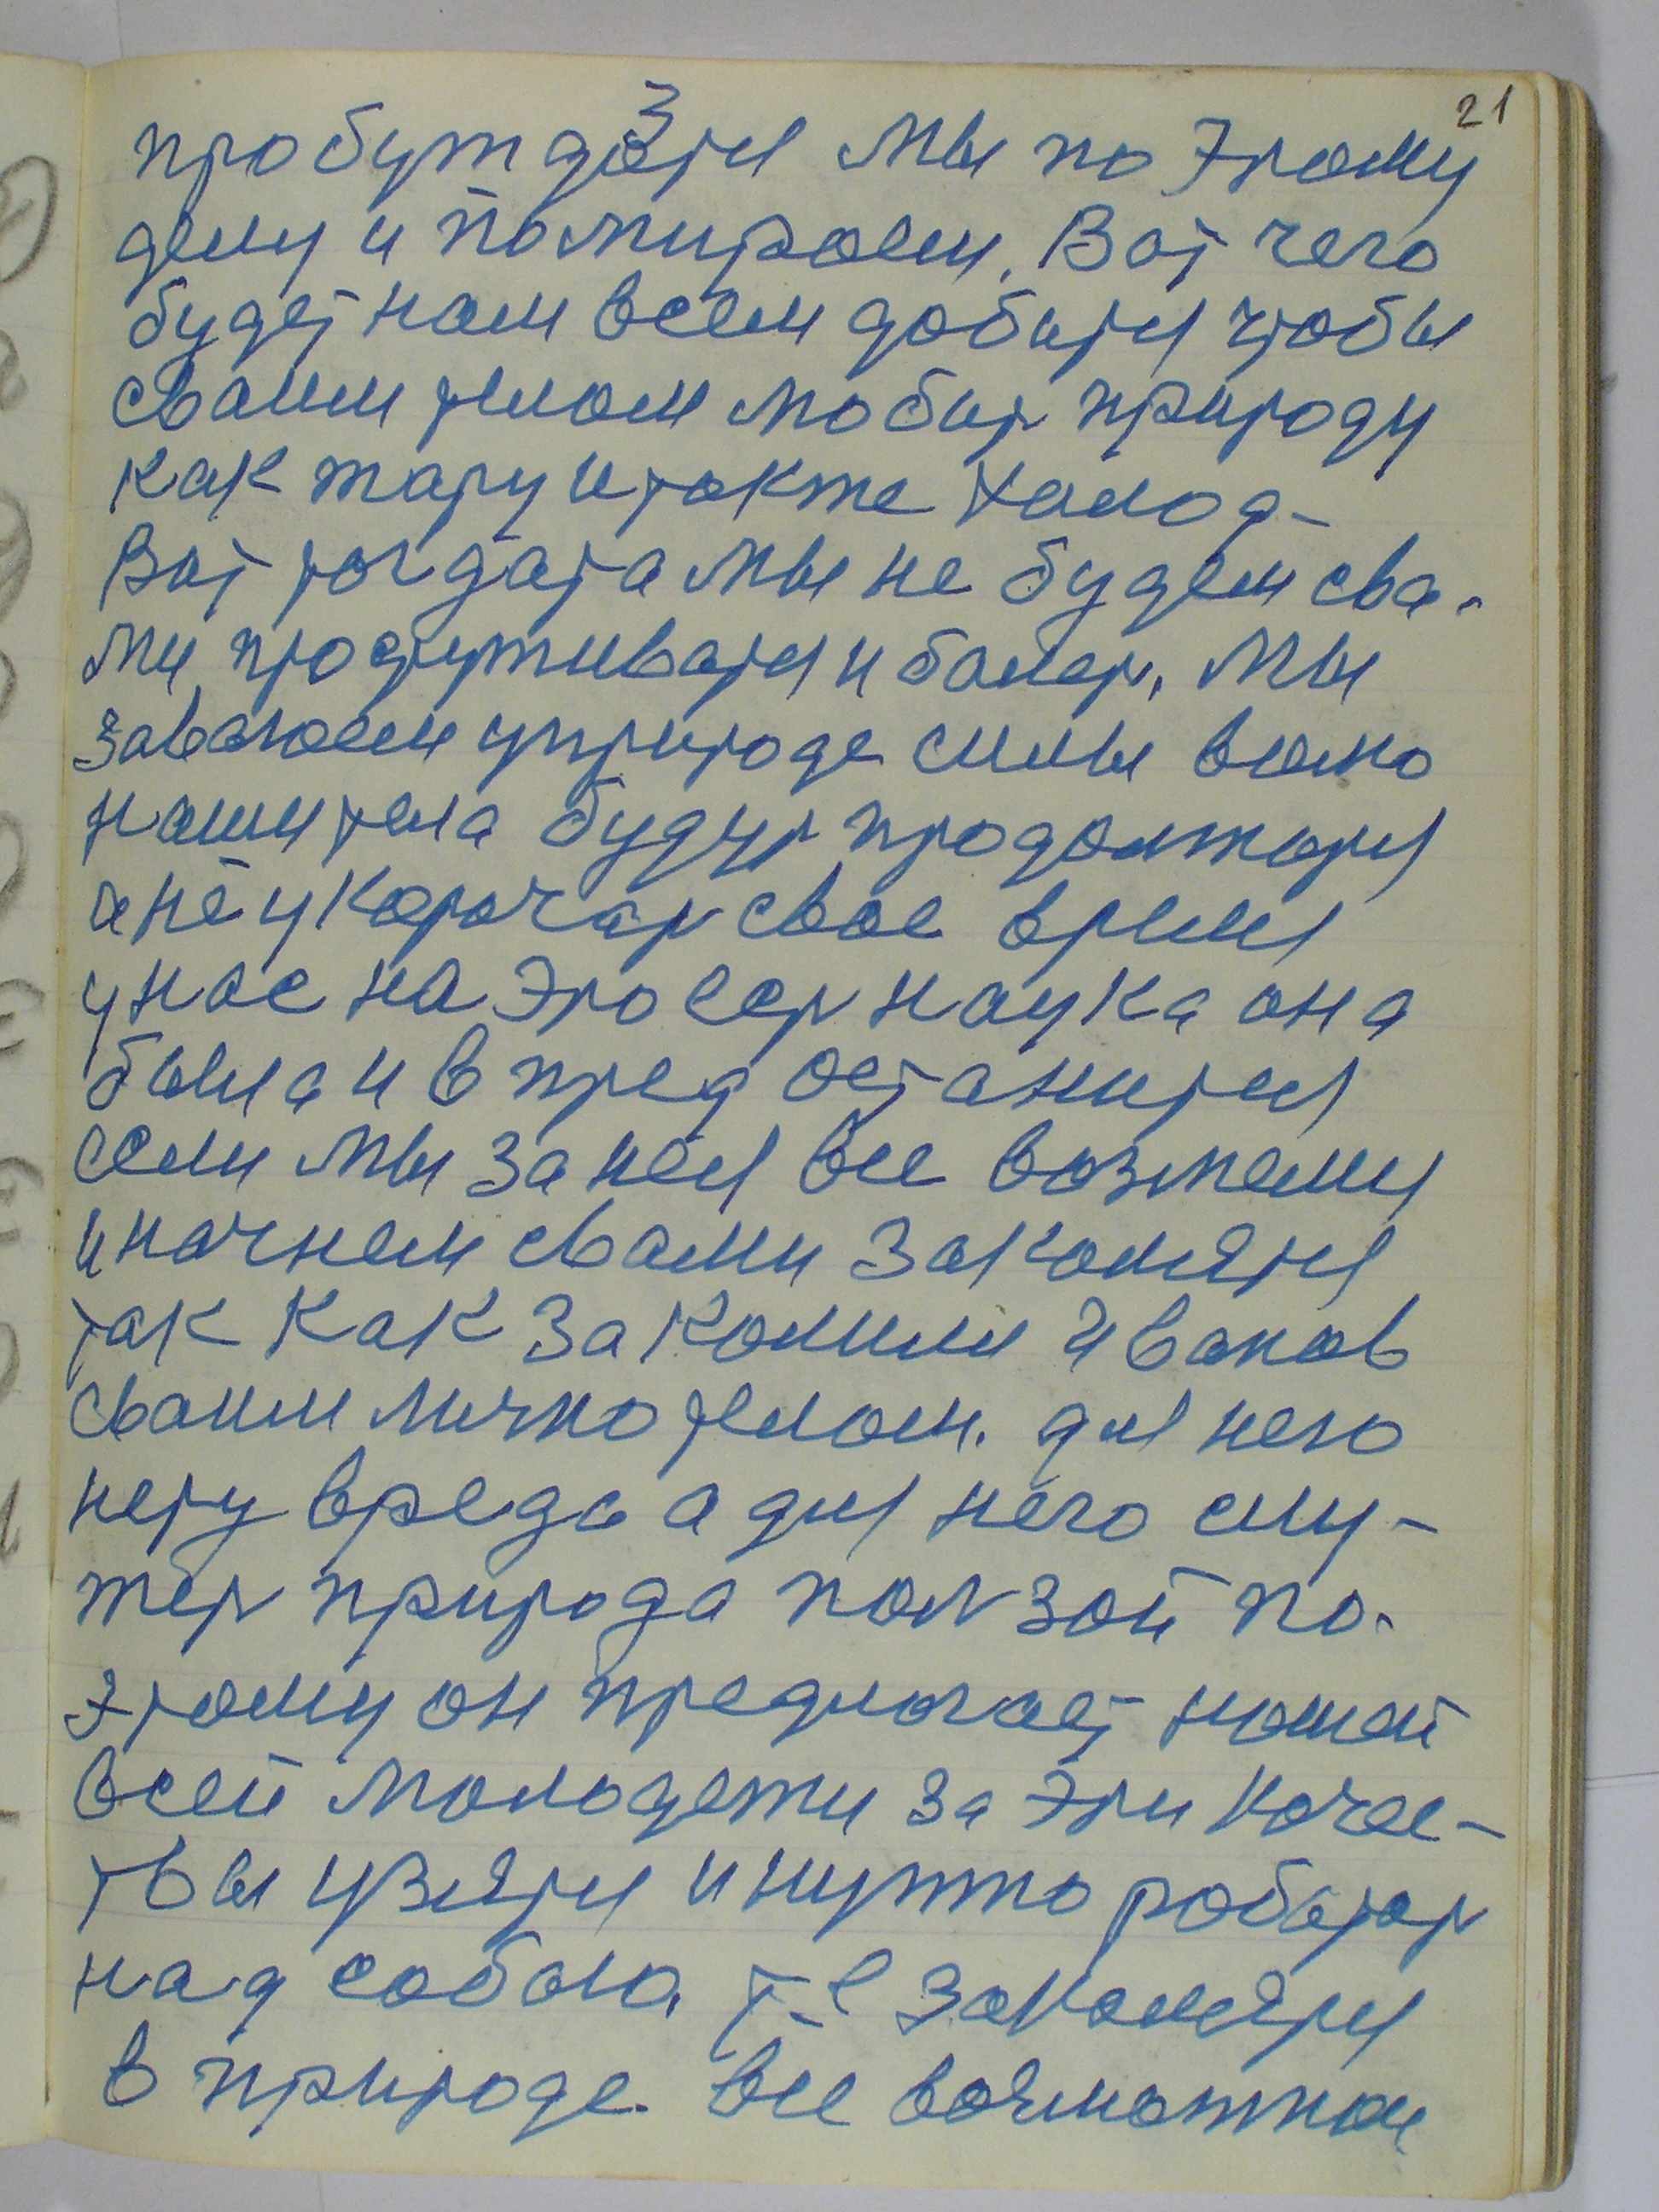 21
3
пробуждатя мы по этому
делу и помираем. Вот чего
будет нам всем добитя чтобы
сваим телом любить природу
как жару и также халод-
Вот тогдата мы не будем сва-
ми простуживатя и балеть, мы
заваюем у природе силы
наши тела будуть продолжатя
а не укорочать свое время
у нас на это есть наука она
была и впред останитя
если мы за нея все возмемы
и начнем свами закалятя
так как закалил Иванов
сваим лично телом. для него
нету вреда а для него слу-
жеть природа ползой по-
этому он предлагает нашей
всей молодежи за эти качес-
твы узятя и нужно работать
над собою, т-е закалятя
в природе все возможном